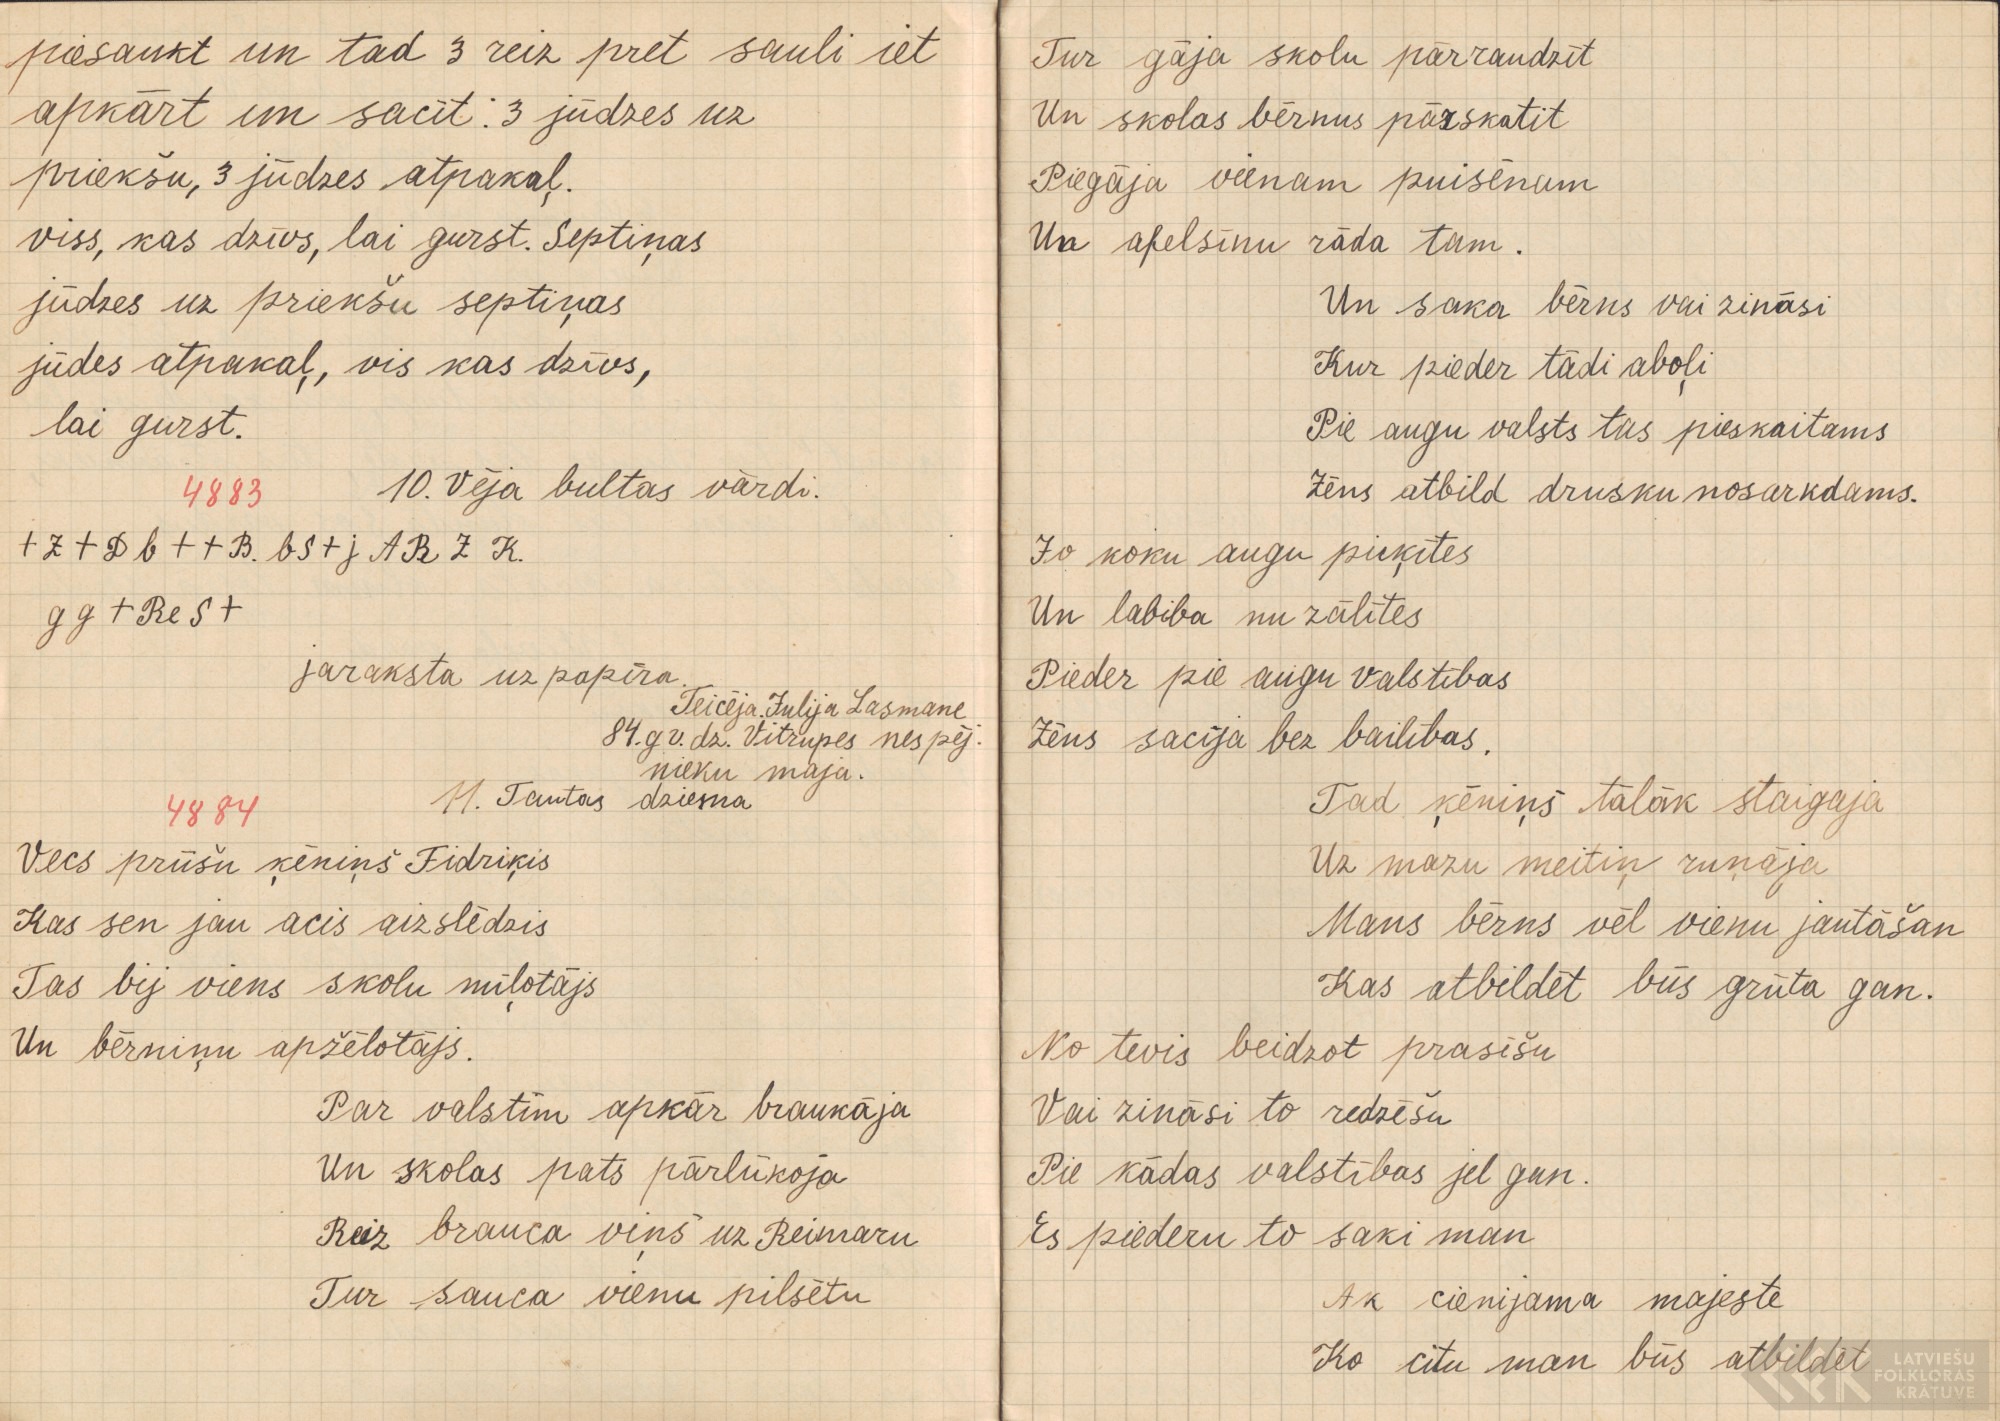 piesaukt un tad 3 reiz pret sauli iet
apkārt un sacīt: 3 jūdzes uz
priekšu, 3 jūdzes atpakaļ.
viss, kas dzīvs, lai gurst. Septiņas
jūdzes uz priekšu septiņas
jūdes atpakaļ, vis kas dzīvs,
lai gurst.
4883 10. Vēja bultas vārdi.
+ Z + D b + + B. b S + j A R Z K.
g g + Re S +
jaraksta uz papīra.
Teicēja. Julija Lasmane
84. g v. dz. Vitrupes nespēj.
nieku maja.
4884 11. Tautas dziesna
Vecs prūšu ķēniņš Fidriķis
Kas sen jau acis aizslēdzis
Tas bij viens skolu mīļotājs
Un bērniņu apžēlotājs.
Par valstīm apkār braukāja
Un skolas pats pārlūkoja
Reiz brauca viņš uz Reimaru
Tur sauca vienu pilsētu
Tur gāja skolu pārraudzīt
Un skolas bērnus pārskatit
Piegāja vienam puisēnam
Un apelsīnu rāda tam.
Un saka bērns vai zināsi
Kur pieder tādi aboļi
Pie augu valsts tas pieskaitams
Zēns atbild drusku nosarkdams.
Jo koku augu puķītes
Un labiba nu zālītes
Pieder pie augu valstības
Zēns sacīja bez bailības.
Tad ķēniņš tālāk staigaja
Uz mazu meitiņ ruņāja
Mans bērns vēl vienu jautāšan
Kas atbildēt būs grūta gan.
No tevis beidzot prasīšu
Vai zināsi to redzēšu
Pie kādas valstības jel gan.
Es piederu to saki man
Ak cienijama majestē
Ko citu man būs atbildēt
LATVIEŠU
FOLKLORAS
KRĀTUVE